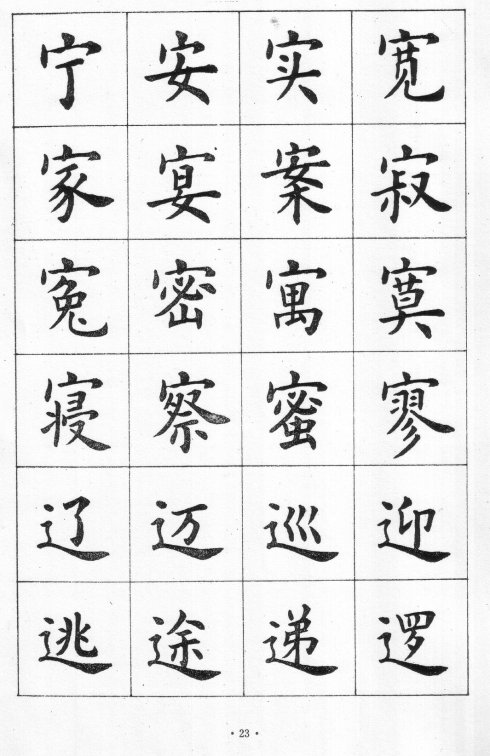 宁安实宽
家宴案寂
冤密寓寞
寝察蜜寥
辽迈巡迎
逃途递逻
· 23 ·